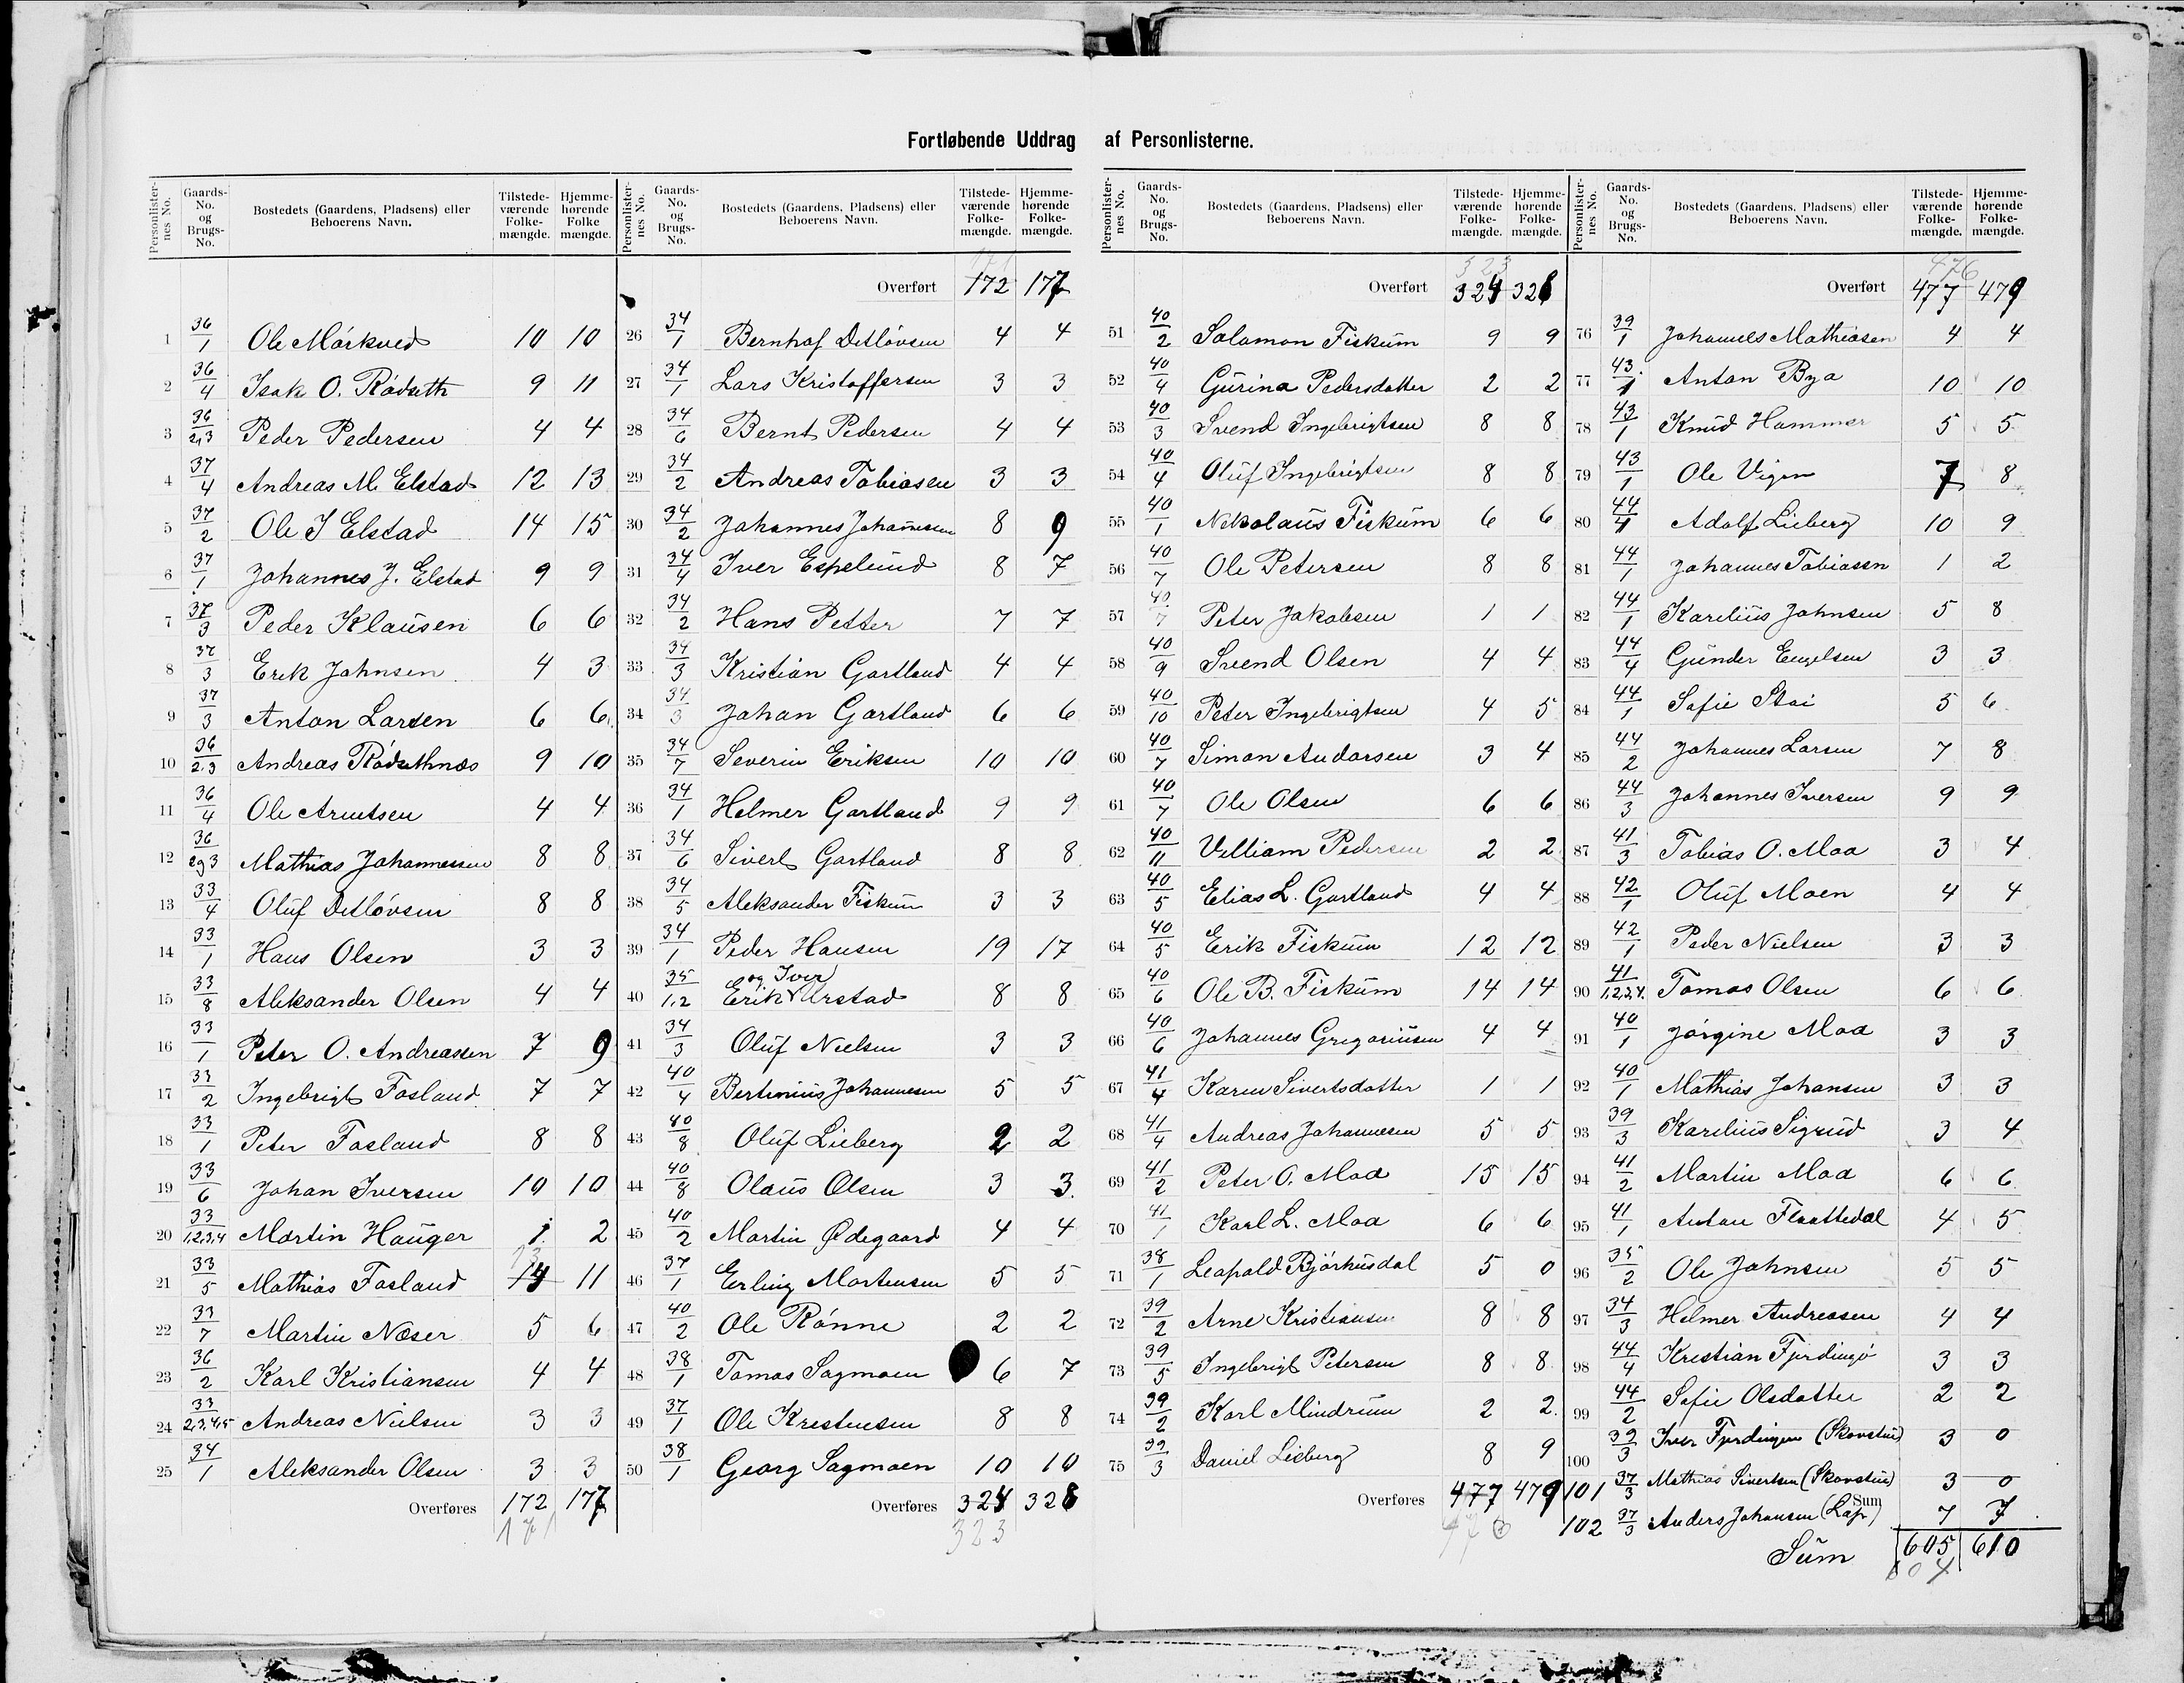 Fortløbende Uddrag af Personlisterne.
Personlister-nes No. Gaards-No. og Brugs-No. Bostedets (Gaardens, Pladsens) eller Beboerens Navn. Tilstede-værende Folke-mængde. Hjemme-hørende Folke mængde.
1 36/1 Ole Mörkved 10 10
2 36/4 Isak O. Rödseth 9 11
3 36/2,3 Peder Pedersen 4 4
4 37/4 Andreas M. Elstad 12 13
5 37/2 Ole J Elstad 14 15
6 37/1 Johannes J. Elstad 9 9
7 37/3 Peder Klausen 6 6
8 37/3 Erik Johnsen 4 3
9 37/3 Anton Larsen 6 6
10 36/2,3 Andreas Rödsethnæs 9 10
11 36/4 Ole Arntsen 4 4
12 36/2og3 Mathias Johannessen 8 8
13 33/4 Oluf Detlövsen 8 8
14 33/1 Hans Olsen 3 3
15 33/8 Aleksander Olsen 4 4
16 33/1 Peter O. Andreassen 7 9
17 33/2 Ingebrigt Fosland 7 7
18 33/1 Peter Fosland 8 8
19 33/6 Johan Iversen 10 10
20 33/1,2,3,4 Martin Hauger 1 2
21 33/5 Mathias Fosland 14 13 11
22 33/7 Martin Næser 5 6
23 36/2 Karl Kristiansen 4 4
24 33/2,3,4,5 Andreas Nielsen 3 3
25 34/1 Aleksander Olsen 3 3
Overføres 172 177
171
Personlister-nes No. Gaards-No. og Brugs-No. Bostedets (Gaardens, Pladsens) eller Beboerens Navn. Tilstede-værende Folke-mængde. Hjemme-hørende Folke-mængde.
171
Overført 172 177
26 34/1 Bernhof Detlövsen 4 4
27 34/1 Lars Kristoffersen 3 3
28 34/6 Bernt Pedersen 4 4
29 34/2 Andreas Tobiasen 3 3
30 34/2 Johannes Johannesen 8 9
31 34/4 Iver Espelund 8 7
32 34/2 Hans Petter 7 7
33 34/3 Kristian Gartland 4 4
34 34/3 Johan Gartland 6 6
35 34/7 Severin Eriksen 10 10
36 34/1 Helmer Gartland 9 9
37 34/6 Sivert Gartland 8 8
38 34/5 Aleksander Fiskum 3 3
39 34/1 Peder Hansen 19 17
40 35/1,2 Erik og Iver Urstad 8 8
41 34/3 Oluf Nielsen 3 3
42 40/4 Bertinius Johannesen 5 5
43 40/8 Oluf Lieberg 2 2
44 40/8 Olaus Olsen 3 3
45 40/2 Martin Ødegaard 4 4
46 37/1 Erling Mortensen 5 5
47 40/2 Ole Rönne 2 2
48 38/1 Tomas Sagmoen 6 7
49 37/1 Ole Krestensen 8 8
50 38/1 Georg Sagmoen 10 10
Overføres 324 328
323
Personlister-nes No. Gaards-No. og Brugs-No. Bostedets (Gaardens, Pladsens) eller Beboerens Navn. Tilstede-værende Folke-mængde. Hjemme-hørende Folke-mængde.
323
Overført 324 328
51 40/2 Salomon Fiskum 9 9
52 40/4 Gurina Pedersdatter 2 2
53 40/3 Svend Ingebrigtsen 8 8
54 40/4 Oluf Ingebrigtsen 8 8
55 40/1 Nekolaus Fiskum 6 6
56 40/7 Ole Petersen 8 8
57 40/7 Peter Jakobsen 1 1
58 40/9 Svend Olsen 4 4
59 40/10 Peter Ingebrigtsen 4 5
60 40/7 Simon Andorsen 3 4
61 40/7 Ole Olsen 6 6
62 40/11 Velliam Pedersen 2 2
63 40/5 Elias L. Gartland 4 4
64 40/5 Erik Fiskum 12 12
65 40/6 Ole B. Fiskum 14 14
66 40/6 Johannes Gregoriusen 4 4
67 41/4 Karen Sivertsdatter 1 1
68 41/4 Andreas Johannesen 5 5
69 41/2 Peter O. Moa 15 15
70 41/1 Karl L. Moa 6 6
71 38/1 Leopold Björhusdal 5 0
72 39/2 Arne Kristiansen 8 8
73 39/5 Ingebrigt Petersen 8 8
74 39/2 Karl Mindrum 2 2
75 39/3 Daniel Lieberg 8 9
Overføres 477 479
476
Personlister-nes No. Gaards-No. og Brugs-No. Bostedets (Gaardens, Pladsens) eller Beboerens Navn. Tilstede-værende Folke-mængde. Hjemme-hørende Folke-mængde.
476
Overført 477 479
76 39/1 Johannes Mathiasen 4 4
77 43/1 Anton Bya 10 10
78 43/1 Knud Hammer 5 5
79 43/1 Ole Vigen 7 8
80 44/1 Adolf Lieberg 10 9
81 44/1 Johannes Tobiasen 1 2
82 44/1 Karelius Johnsen 5 8
83 44/4 Gunder Engelsen 3 3
84 44/1 Sofie Stai 5 6
85 44/2 Johannes Larsen 7 8
86 44/3 Johannes Iversen 9 9
87 41/3 Tobias O. Moa 3 4
88 42/1 Oluf Moen 4 4
89 42/1 Peder Nielsen 3 3
90 41/1,2,3,4. Tomas Olsen 6 6
91 40/1 Jörgine Moa 3 3
92 40/1 Mathias Johansen 3 3
93 39/3 Karelius Sigrud 3 4
94 41/2 Martin Moa 6 6
95 41/1 Anton Flaattedal 4 5
96 35/2 Ole Johnsen 5 5
97 34/3 Helmer Andreasen 4 4
98 44/4 Krestian Fjerdingö 3 3
99 44/2 Sofie Olsdatter 2 2
100 39/3 Iver Fjerdingen (Skovstue) 3 0
101 37/3 Mathias Sivertsen (Skovstue) 3 0
Sum
102 37/3 Anders Johansen (Lap) 7 7
Sum 605 610
604